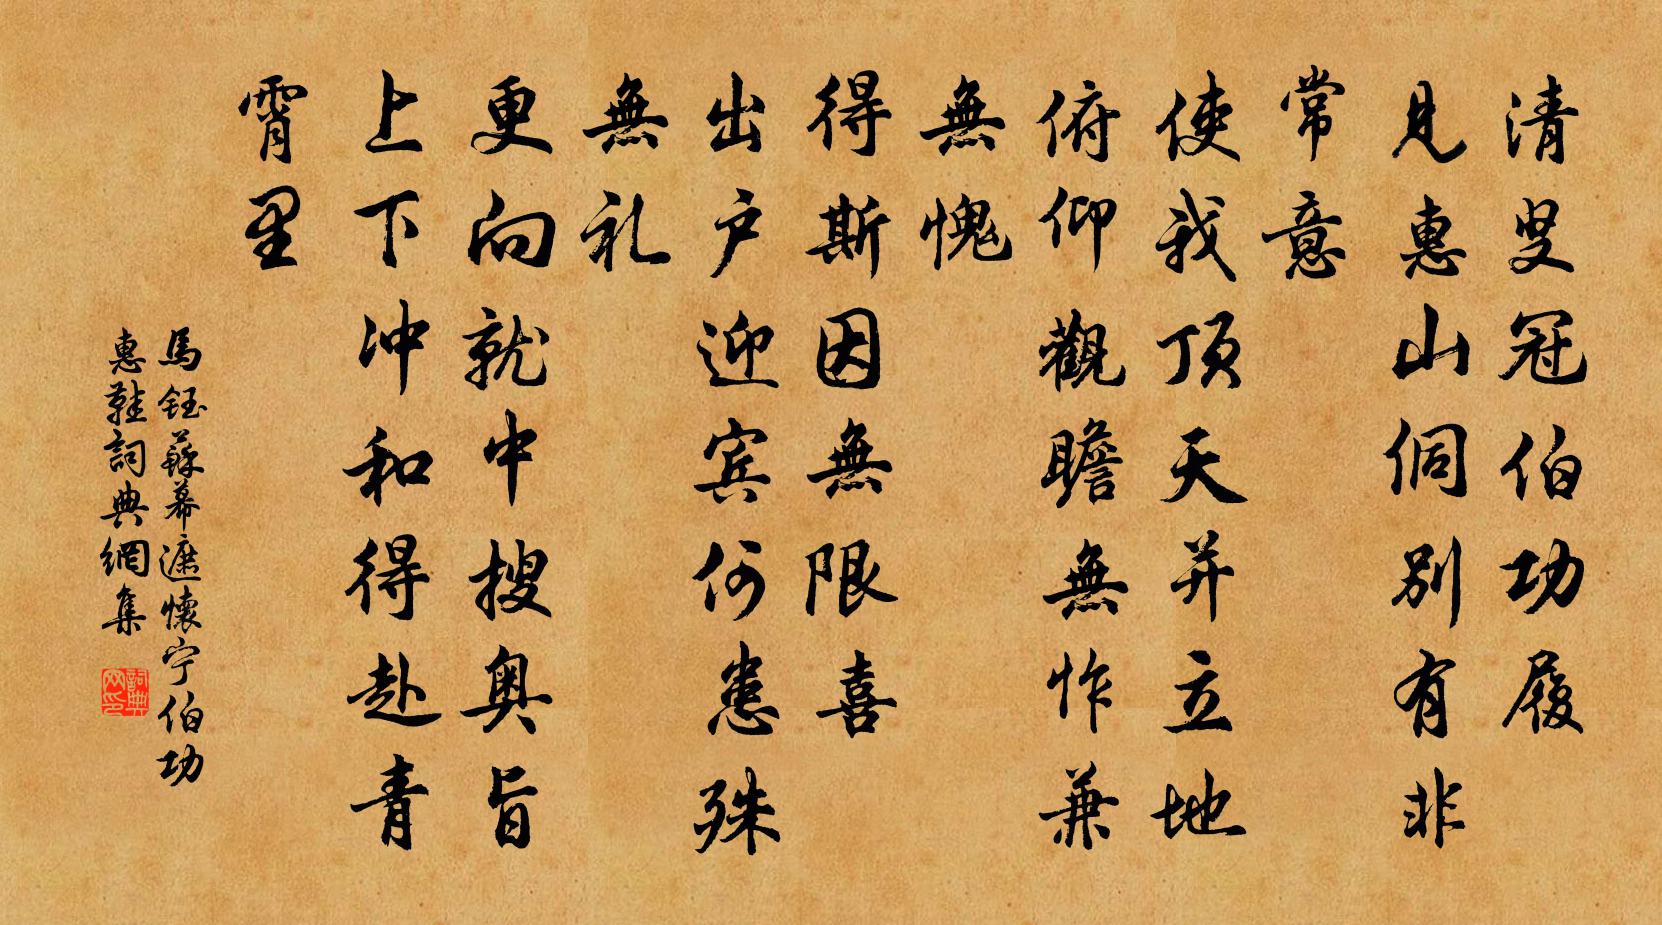 清叟冠伯功履
見惠山侗別有非
常意
使我頂天并立地
俯仰觀瞻無怍兼
無愧
得斯因無限喜
出户迎賓何患殊
無礼
更向就中搜奥旨
上下冲和得赴青
霄里
馬鈺蘇幕遮懷宁伯功
惠鞋詞典網集
詞典网印